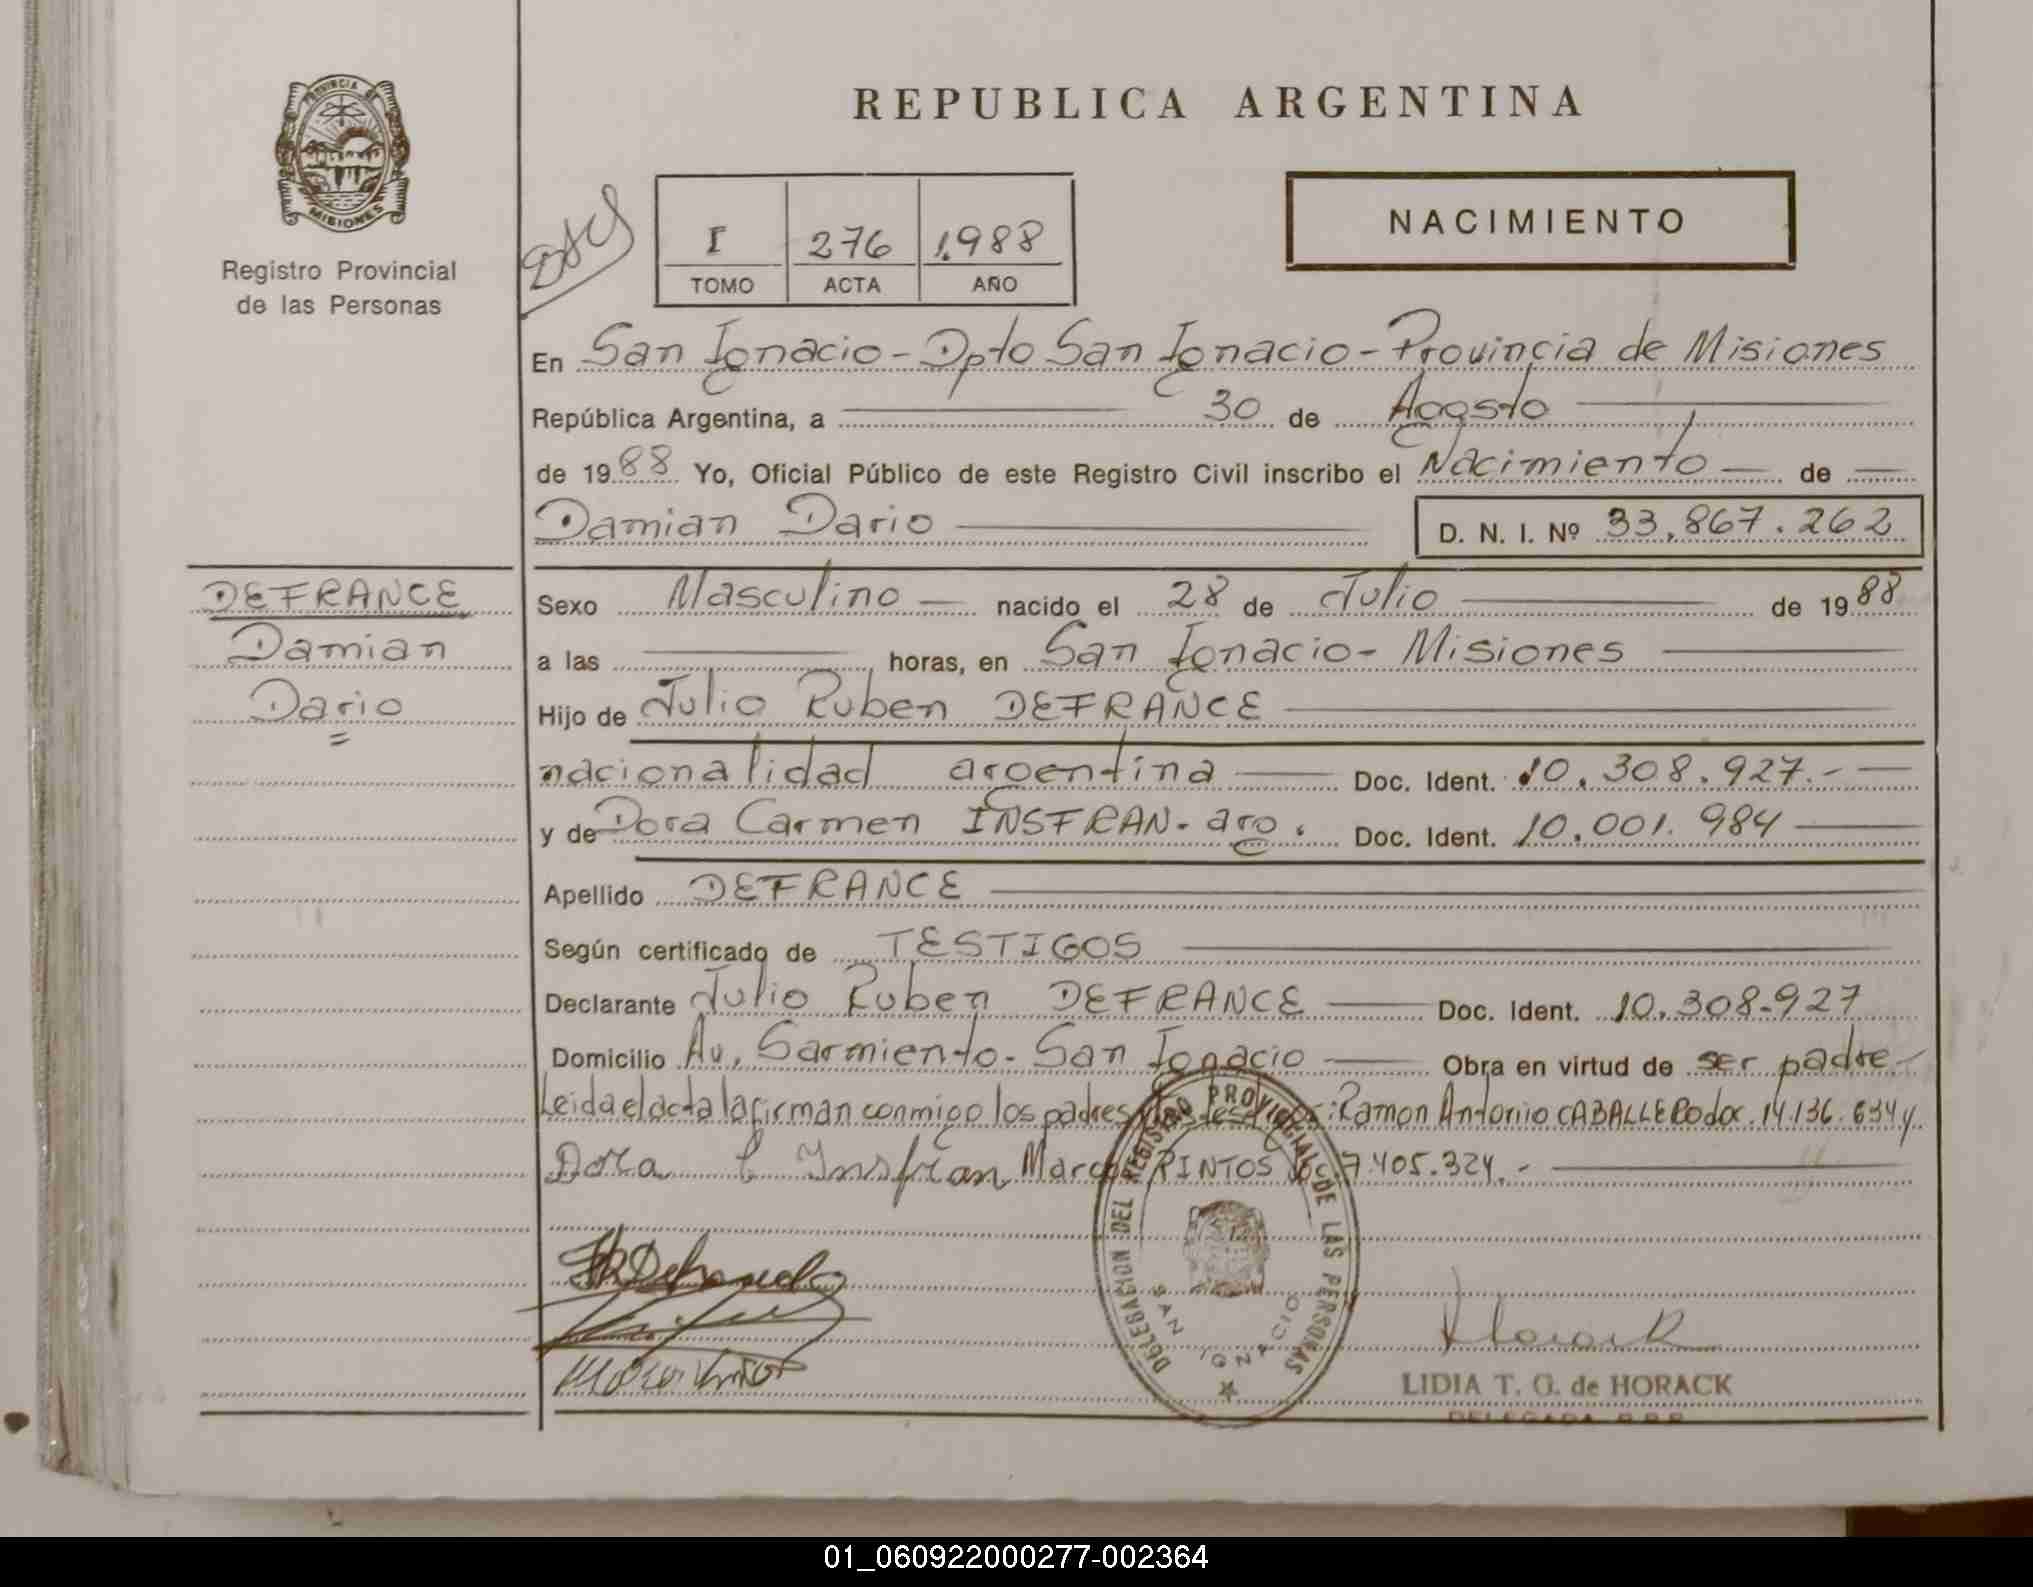 PROVINCIA DE
MISIONES
Registro Provincial
de las Personas
REPUBLICA ARGENTINA
I 276 1.988
TOMO ACTA AÑO
NACIMIENTO
En San Ignacio - Dpto San Ignacio - Provincia de Misiones
República Argentina, a 30 de Agosto
de 1988 Yo, Oficial Público de este Registro Civil inscribo el Nacimiento de
Damian Dario D. N. I. Nº 33.867.262
DEFRANCE
Damian
Dario
Sexo Masculino nacido el 28 de Julio de 1988
a las horas, en San Ignacio - Misiones
Hijo de Julio Ruben DEFRANCE
nacionalidad argentina Doc. Ident. 10.308.927.-
y de Dora Carmen INSFRAN - arg. Doc. Ident. 10.001.984
Apellido DEFRANCE
Según certificado de TESTIGOS
Declarante Julio Ruben DEFRANCE Doc. Ident. 10.308.927
Domicilio Av. Sarmiento - San Ignacio Obra en virtud de ser padre -
Leida el acta la firman conmigo los padres y los testigos: Ramon Antonio CABALLERO doc. 14.136.634 y
Dora C Insfran Marcos PINTOS doc. 7.405.324.-
DELEGACION DEL REGISTRO PROVINCIAL DE LAS PERSONAS
SAN IGNACIO
LIDIA T. G. de HORACK
DELEGADA R.P.P.
01_060922000277-002364